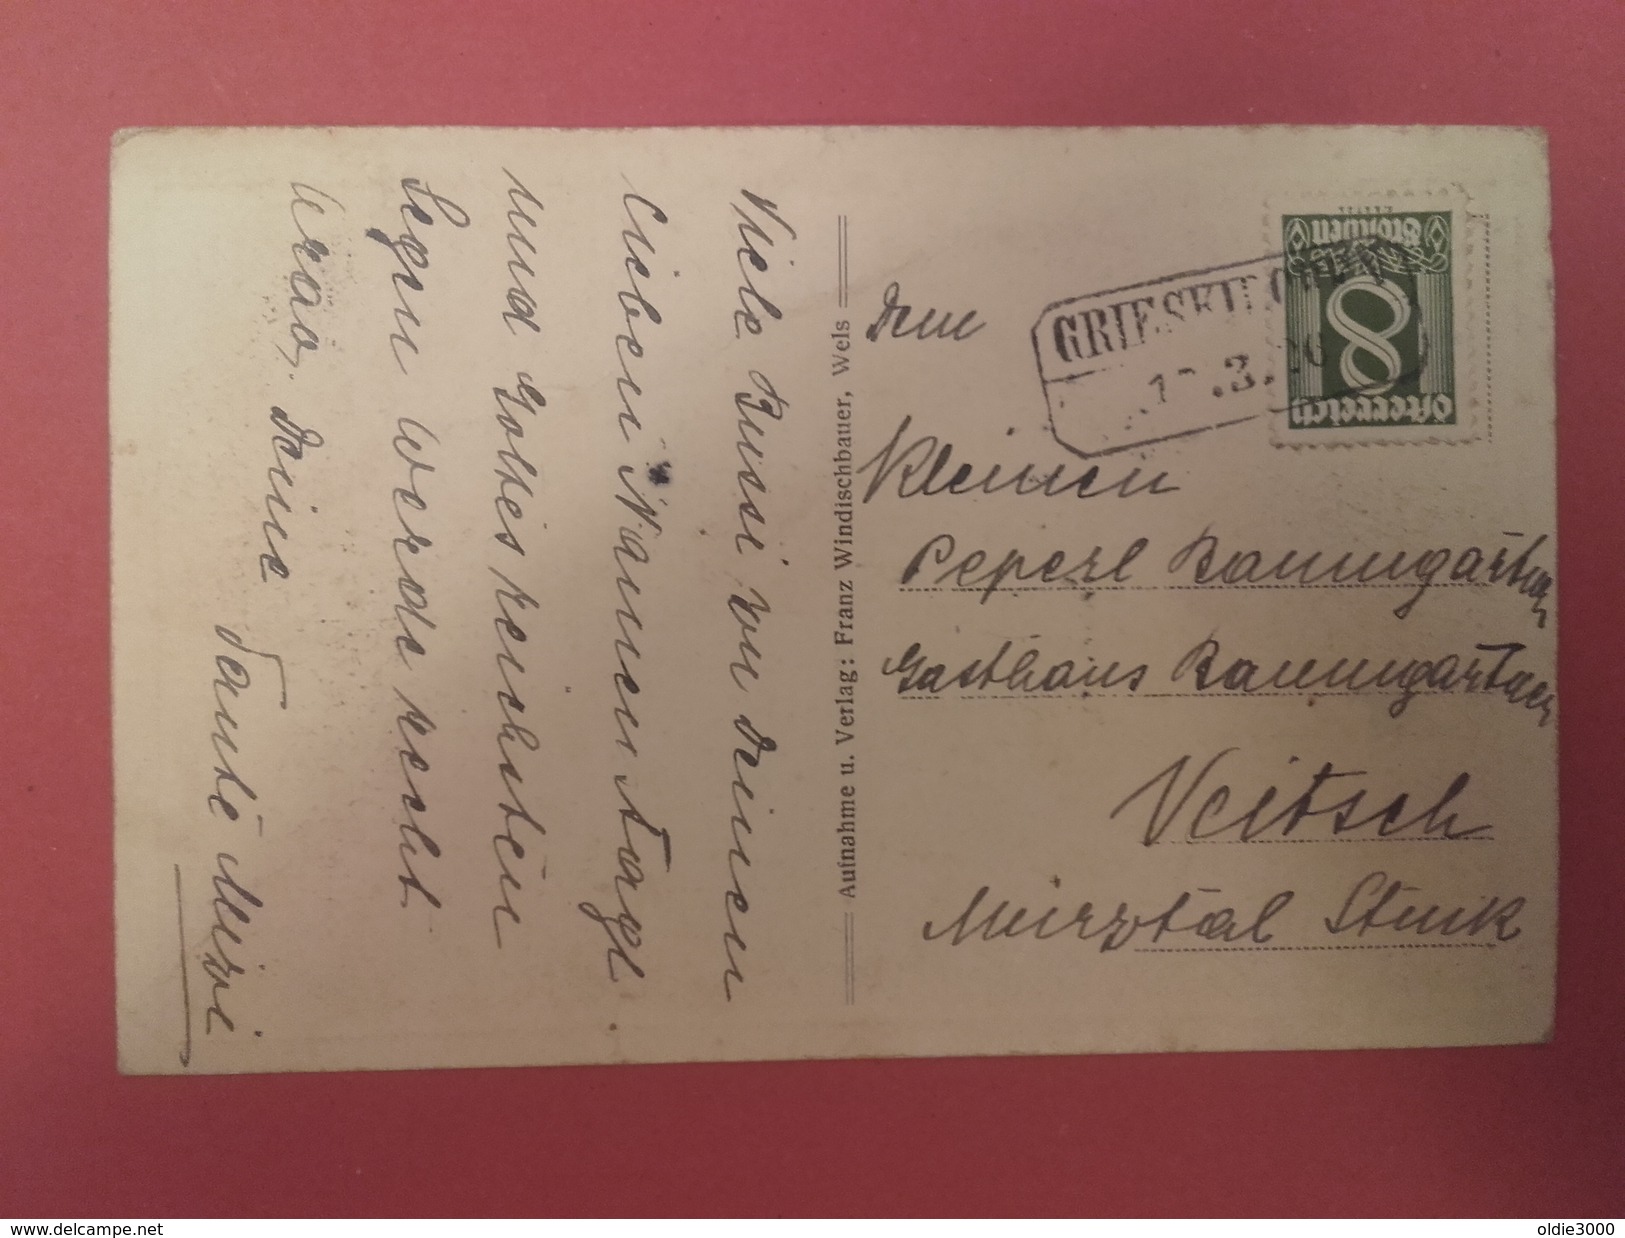 Viele Busi von Deinen
lieben Namenstagl
und Gottes reichsten
Segen werde recht
brav. Deine
Tante Muzi
Aufnahme u. Verlag: Franz Windischbauer, Wels
Dem
Kleinen
Peperl Baumgartner
Gasthaus Baumgartner
Veitsch
Mürztal Stmk
GRIESKIRCHEN 1
.3.26
Groschen
8
Österreich
www.delcampe.net
oldie3000